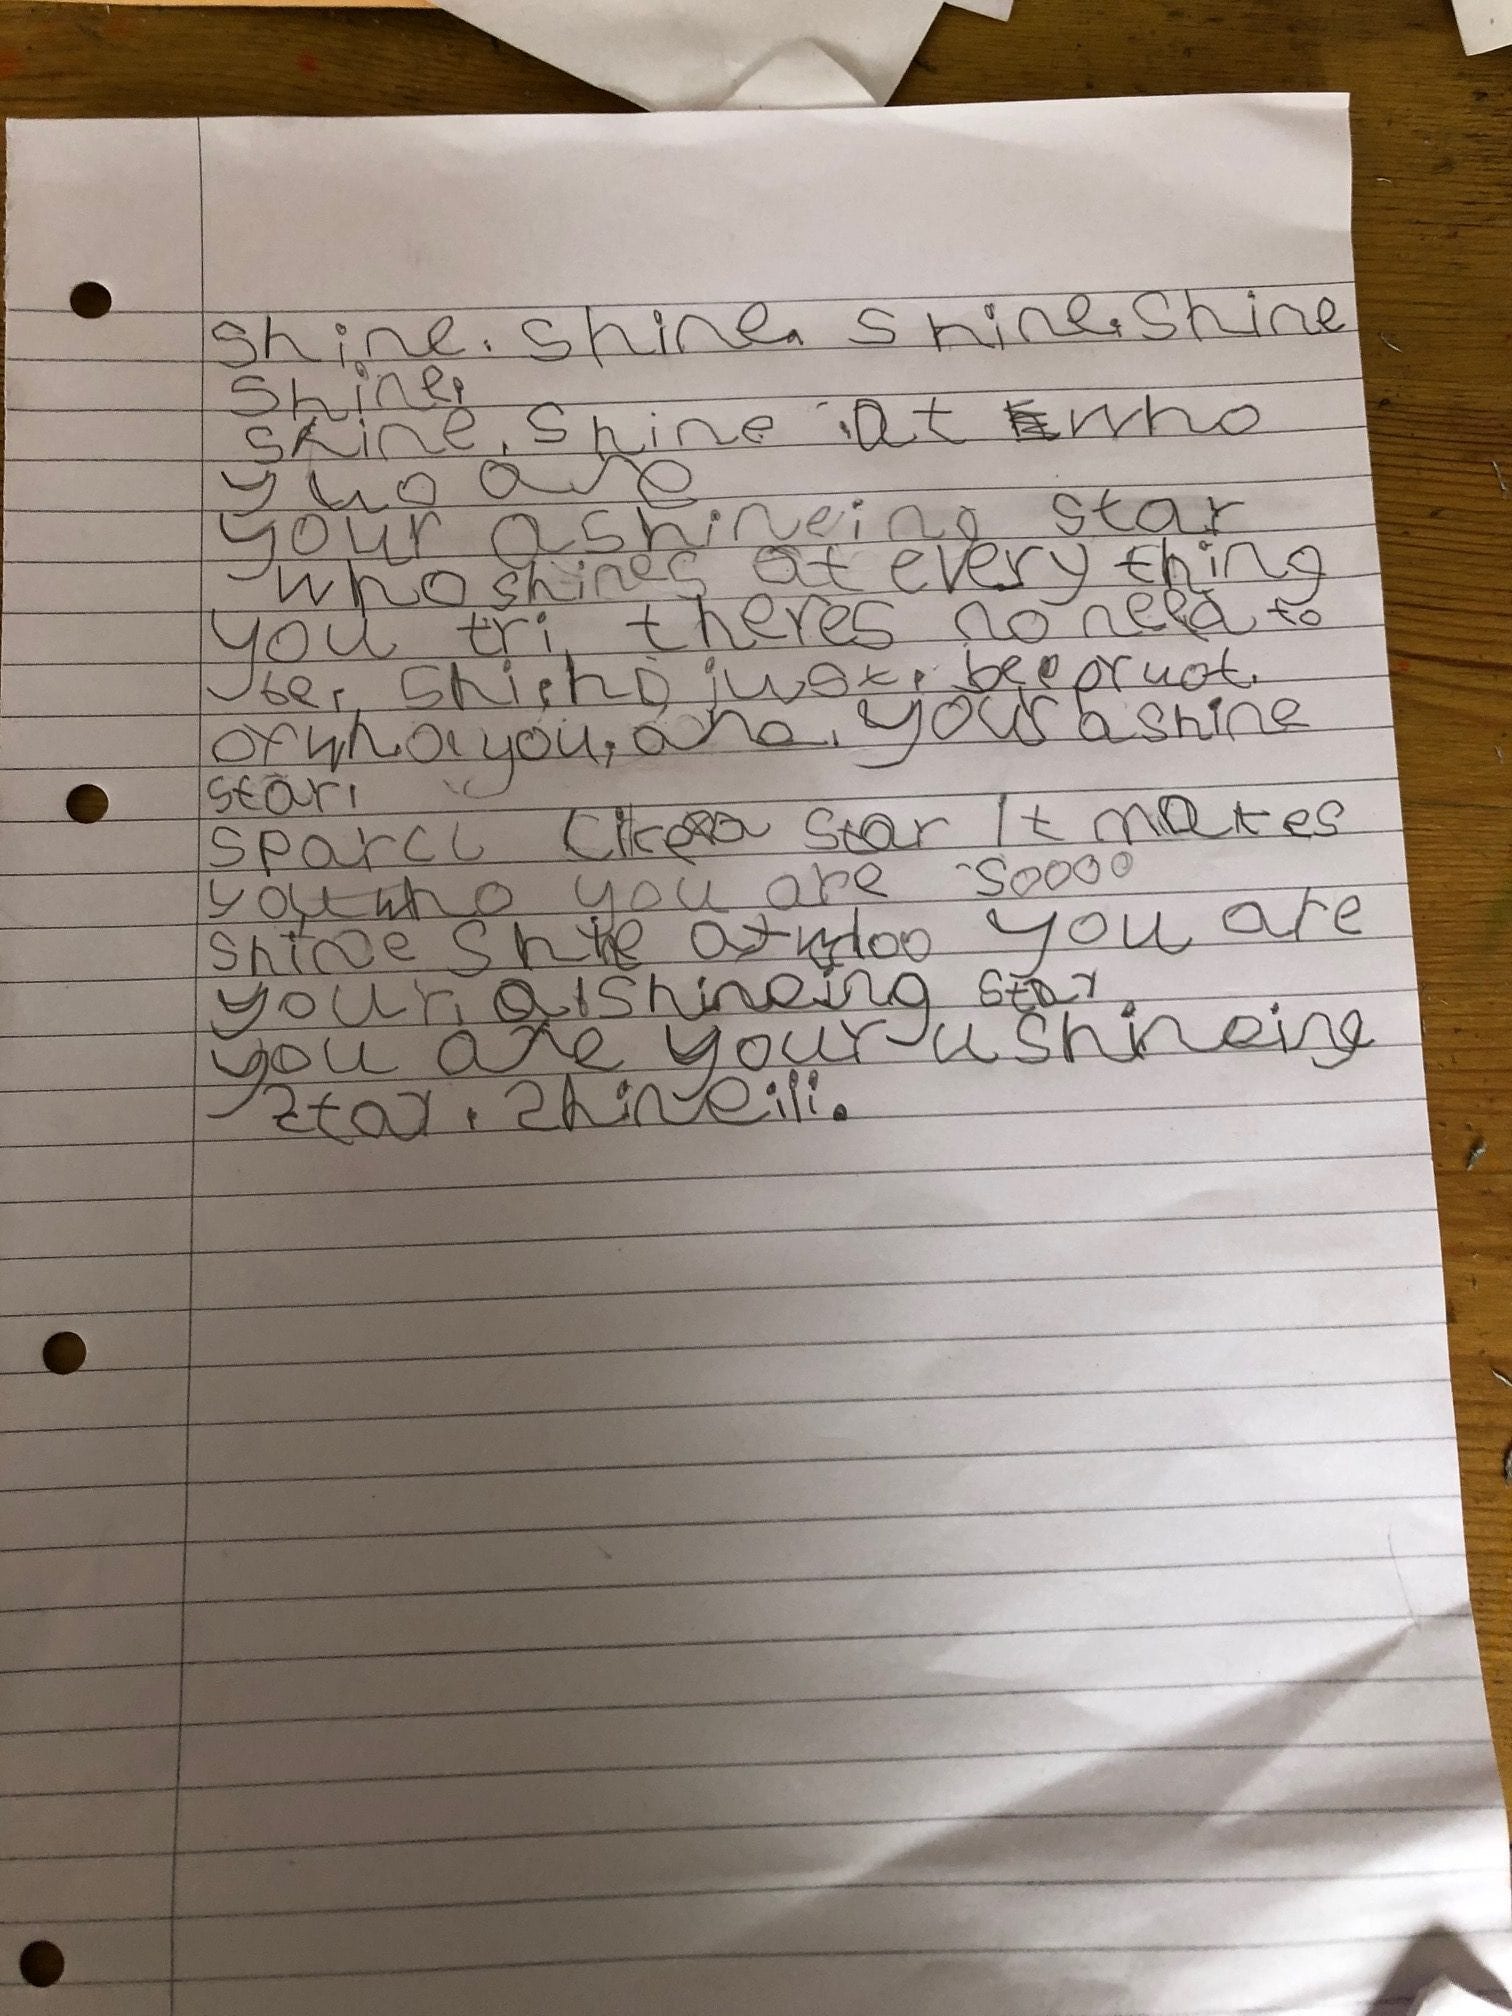 shine. shine. shine. Shine
shine.
shine. Shine at who
yuo are
your a shineing star
who shines at every thing
you tri theres no need to
be, just. bee pruot.
of who you, are. your a shine
star.
sparcl like a star It makes
you who you are soooo
shine at you are
your a shineing star
you are your a shineing
star. shineiii.